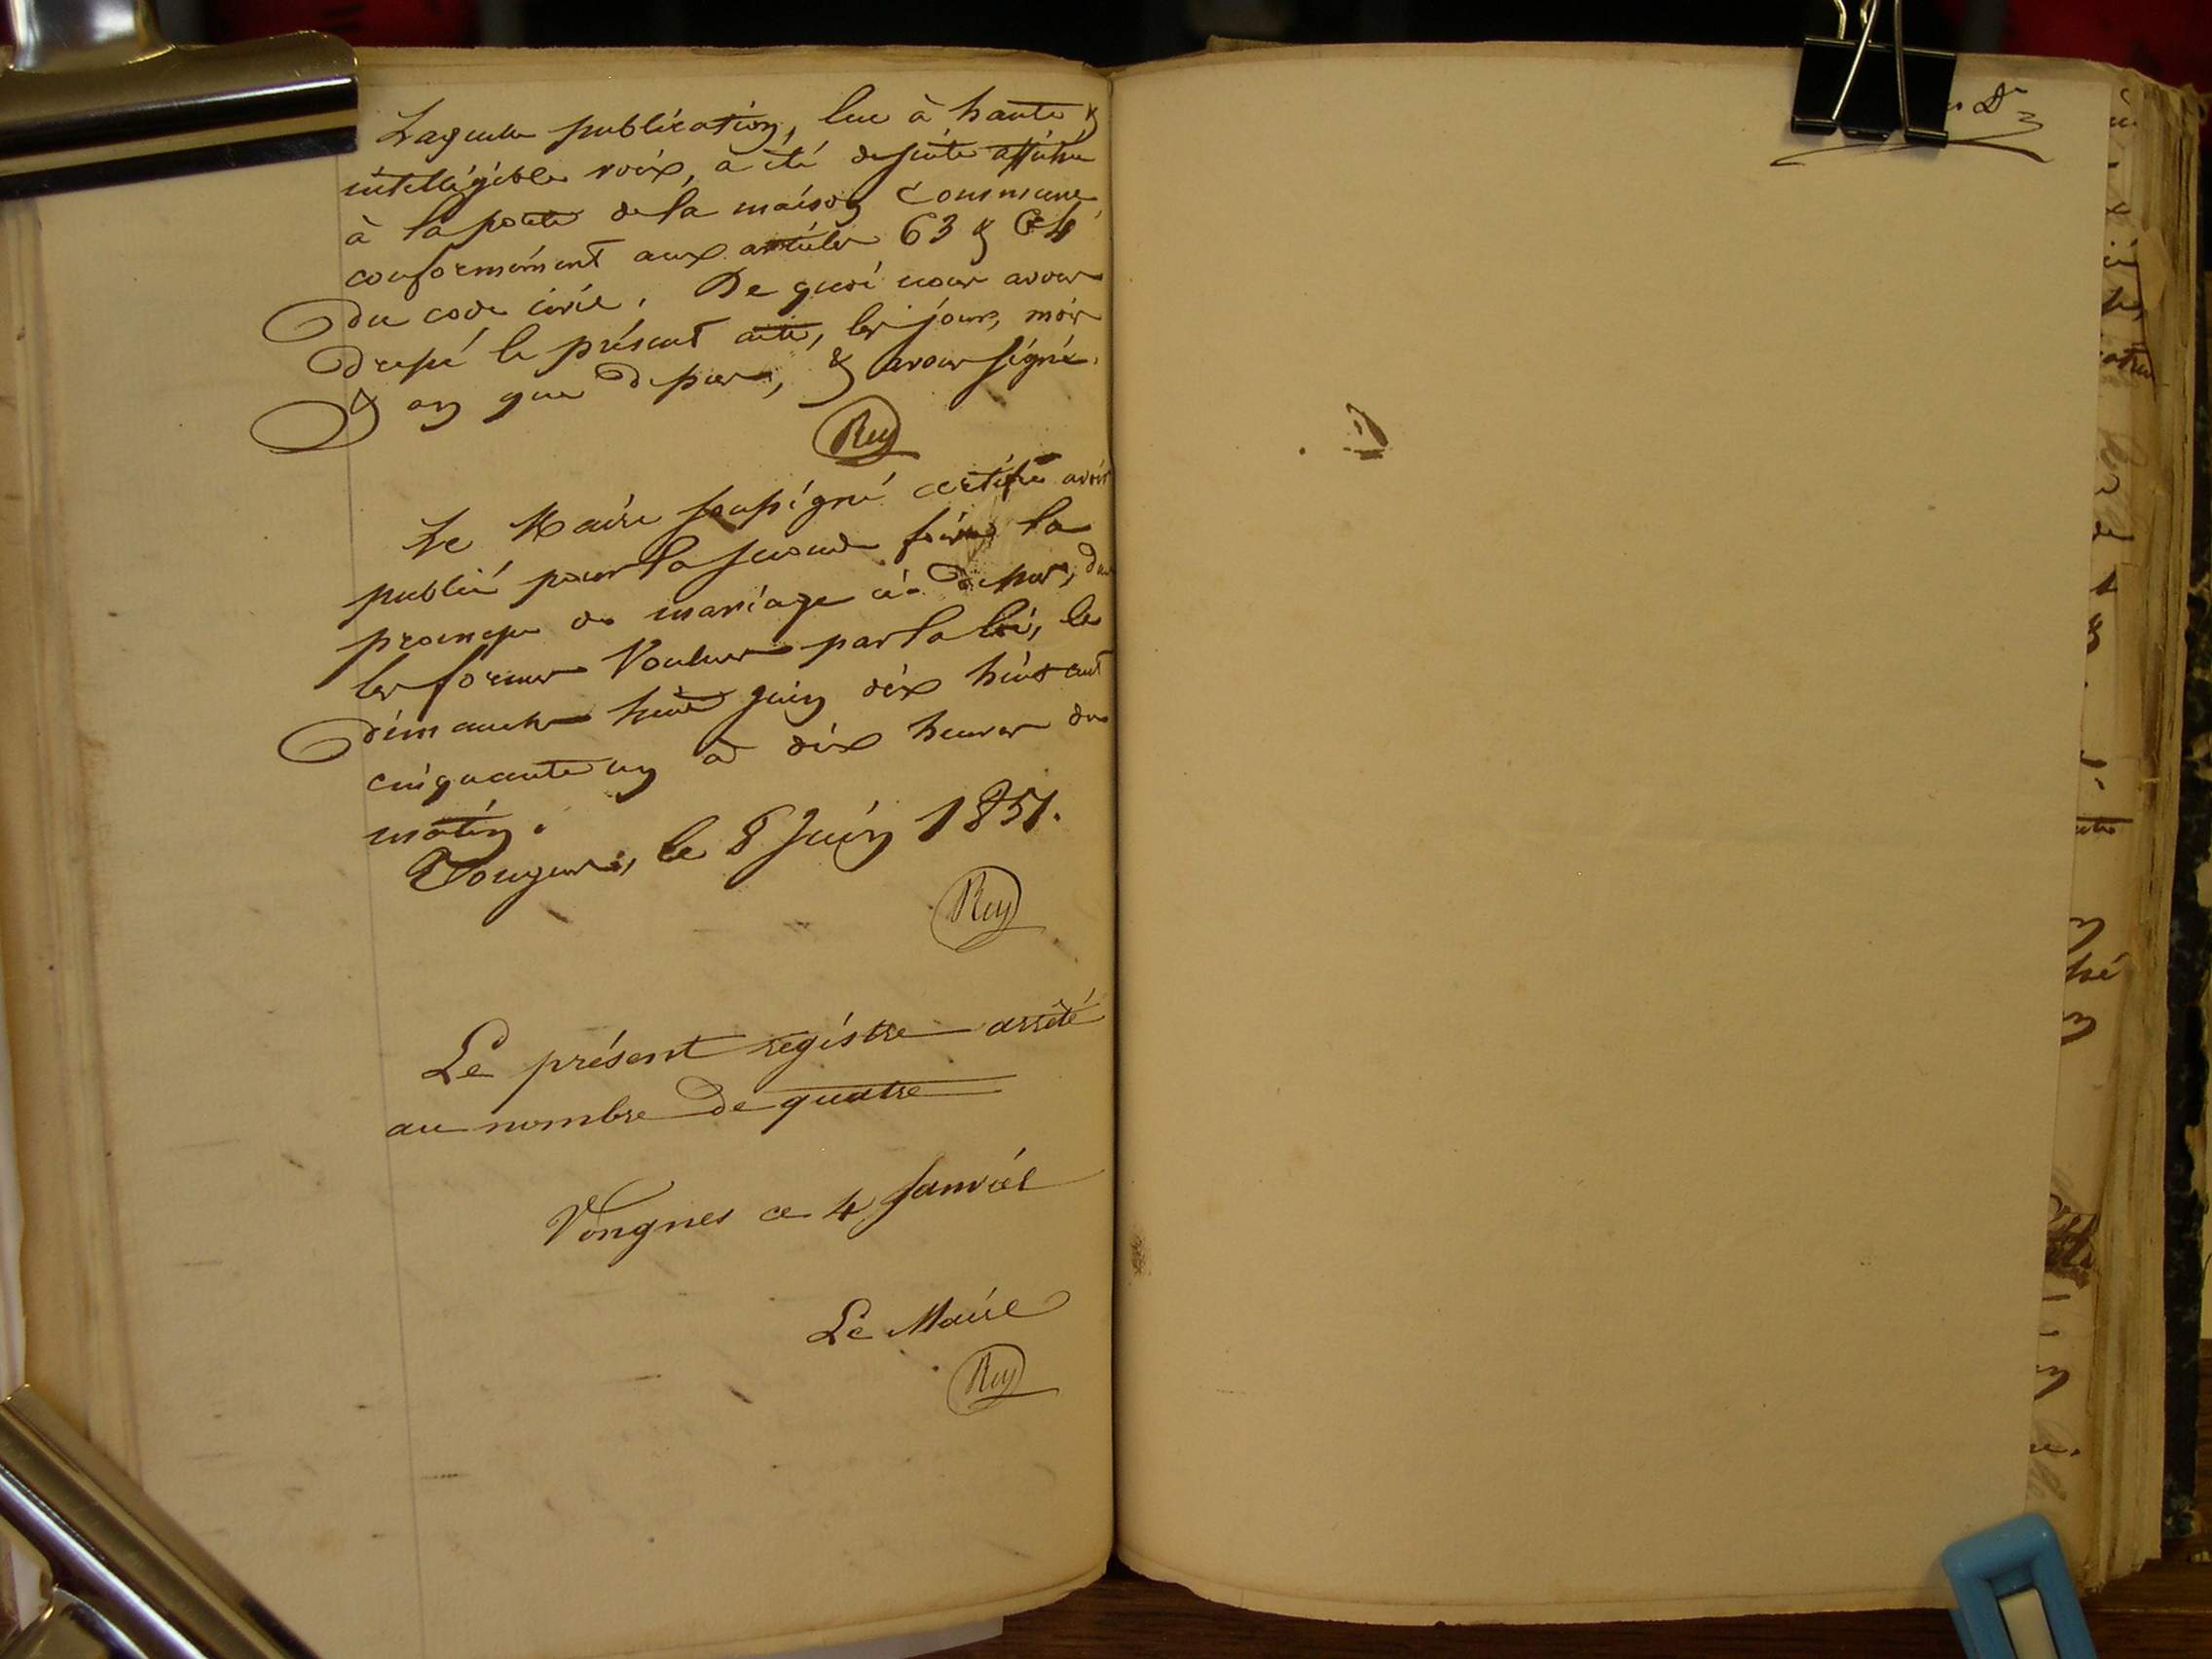 Laquelle publication, lue à haute &
intelligible voix, a été de suite affichée
à la porte de la maison Commune,
conformément aux articles 63 & 64
du code civil. De quoi nous avons
dressé le présent acte, les jour, mois
& an que dessus, & avons signé.
Rey
Le Maire soussigné certifie avoir
publié pour la seconde fois la
promesse de mariage ci-dessus, dans
les formes Voulues par la loi, le
dimanche huit juin dix huit cent
cinquante un à dix heures du
matin.
Vongnes, le 8 Juin 1851.
Rey
Le présent registre arrêté
au nombre de quatre
Vongnes ce 4 Janvier
Le Maire
Rey